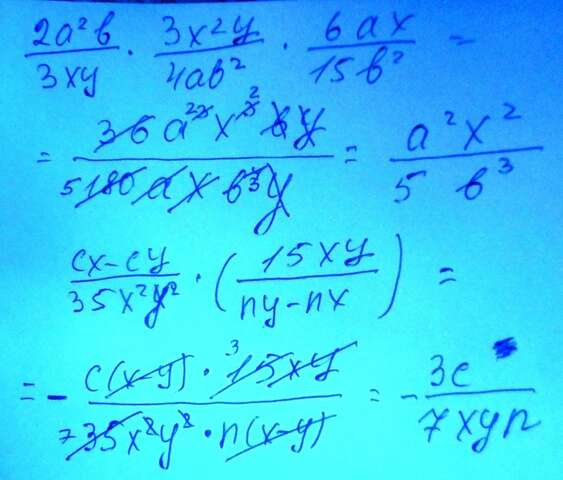 2a²b/3xy · 3x²y/4ab² · 6ax/15b² =
= 36a²x²by/5 180axb³y = a²x²/5b³
cx-cy/35x²y² · (15xy/ny-nx) =
= - c(x-y) · ³15xy/7 35x²y² · n(x-y) = - 3c/7xyn